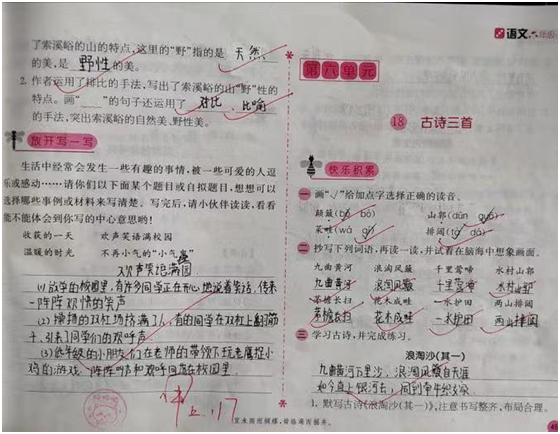 了索溪峪的山的特点,这里的“野”指的是 天然
的美,是 野性的美。
2. 作者运用了排比的手法,写出了索溪峪的山“野”性的
特点。画“——”的句子还运用了 对比、比喻
的手法,突出索溪峪的自然美、野性美。
放开写一写
生活中经常会发生一些有趣的事情,被一些可爱的人逗
乐或感动……请你们以下面某个题目或自拟题目,想想可以
选择哪些事例或材料来写清楚。写完后,请小伙伴读读,看看
能不能体会到你写的中心意思哟!
收获的一天 欢声笑语满校园
温暖的时光 不再小气的“小气鬼”
欢声笑语满园
(1)放学的校园里,有许多同学正在开心地说着笑话,传来
一阵阵欢快的笑声
(2)操场的双杠场挤满了人,有的同学在双杠上翻筋
斗,引来了同学们的欢呼声
(3)低年级的小朋友们在老师的带领下玩老鹰捉小
鸡的游戏,一阵阵叫声和欢呼回荡在校园里.
5.17
宜未雨而绸缪,毋临渴而掘井。
语文 六年级
第六单元
18 古诗三首
快乐积累
一 画“√”给加点字选择正确的读音。
颠簸(bǒ bō) 山郭(
菜畦(wā qí) 排闼(tà dá)
二 抄写下列词语,再读一读,并试着在脑海中想象画面。
九曲黄河 浪淘风簸 千里莺啼 水村山郭
九曲黄河 浪淘风簸 千里莺啼 水村山郭
茅檐长扫 花木成畦 一水护田 两山排闼
茅檐长扫 花木成畦 一水护田 两山排闼
三 学习古诗,并完成练习。
浪淘沙(其一)
九曲黄河万里沙,浪淘风簸自天涯
如今直上银河去,同到牵牛织女家
1. 默写古诗《浪淘沙(其一)》,注意书写整齐,布局合理。